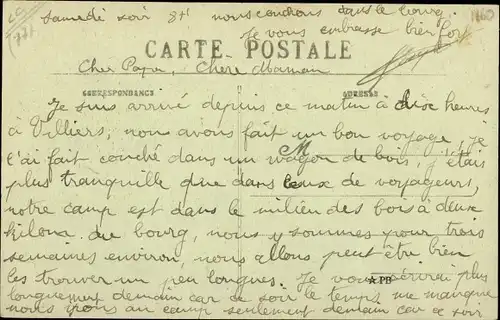 Samedi soir 8h nous couchons dans le bourg.
Je vous embrasse bien fort
CARTE POSTALE
Cher Papa, Chère Maman
CORRESPONDANCE ADRESSE
Je suis arrivé depuis ce matin à dix heures
à Villiers, nous avons fait un bon voyage, je
l'ai fait couché dans un wagon de bois, j'étais
M
plus tranquille que dans ceux de voyageurs,
notre camp est dans le milieu des bois à deux
kilom. du bourg, nous y sommes pour trois
semaines environ, nous allons peut être bien
les trouver un peu longues. Je vous écrirai plus
★ PB
longuement demain car ce soir le temps me manque
nous irons au camp seulement demain car ce soir